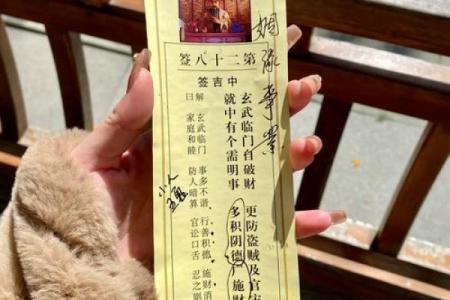 第二十八签
中吉签
姻缘事业
玄武临门自破财
更防盗贼及官灾
就中有个需明事
多积阴德广施财
解曰
玄武临门 事多不谐 行善积德 施财消
家庭和睦 防人暗算 官讼口舌 忍之则
小人